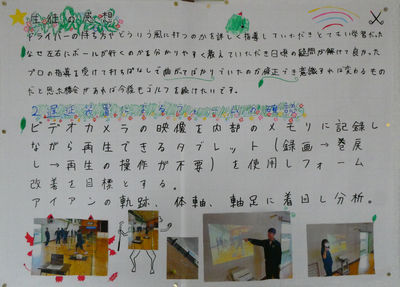 生徒の感想
ドライバーの持ち方やどういう風に打つのかを詳しく指導していただきとても学習だった
なぜ左右にボールが行くのかを分かりやすく教えていただき日頃の疑問が解けて良かった
プロの指導を受けて打ちぱなしで曲がってばかりでいたのが修正でき意識すれば変わるもの
だと思った機会があれば今後もゴルフを続けたいです。
ビデオカメラの映像を内部のメモリに記録し
ながら再生できるタブレット（録画→巻戻
し→再生の操作が不要）を使用しフォーム
改善を目標とする。
アイアンの軌跡、体軸、軸足に着目し分析。